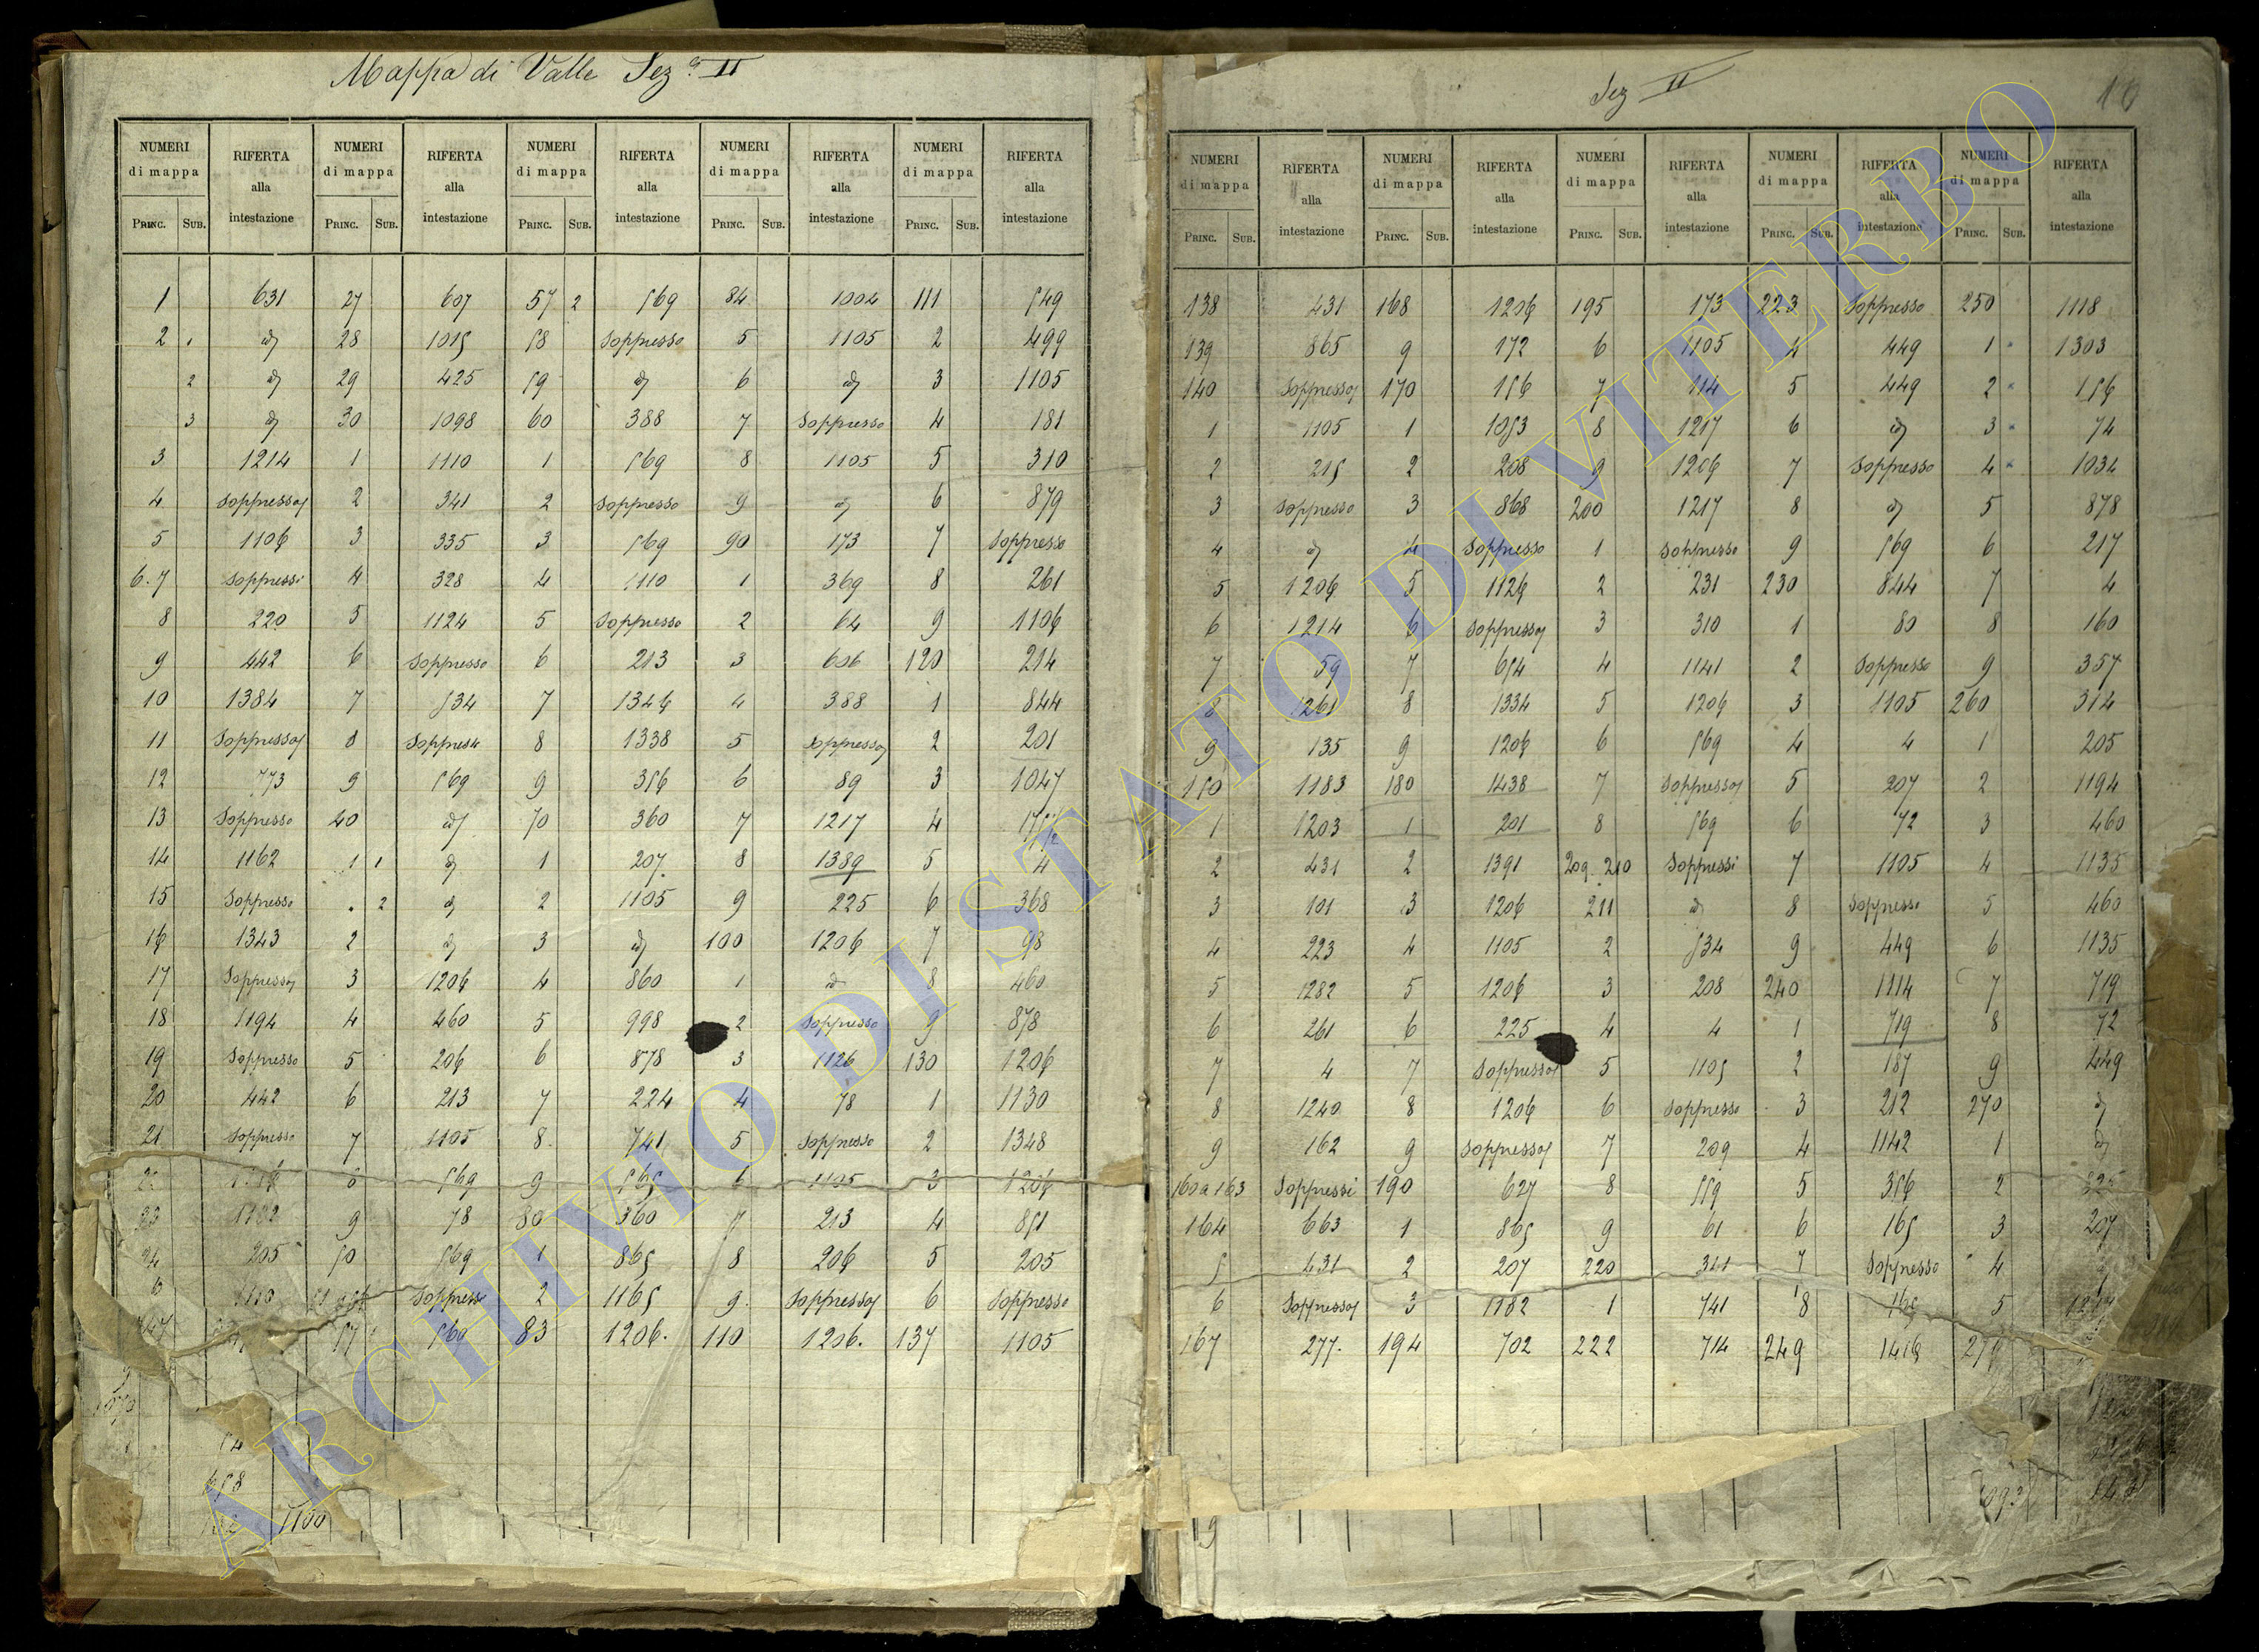 Mappa di Valle Sez.ª II
NUMERI di mappa RIFERTA alla intestazione NUMERI di mappa RIFERTA alla intestazione NUMERI di mappa RIFERTA alla intestazione NUMERI di mappa RIFERTA alla intestazione NUMERI di mappa RIFERTA alla intestazione
PRINC. SUB. PRINC. SUB. PRINC. SUB. PRINC. SUB. PRINC. SUB.
1 631 27 607 57 2 569 84 1004 111 549
2 1 id 28 1015 58 Soppresso 5 1105 2 499
2 id 29 425 59 id 6 id 3 1105
3 id 30 1098 60 388 7 Soppresso 4 181
3 1214 1 1110 1 569 8 1105 5 310
4 Soppresso 2 341 2 Soppresso 9 id 6 879
5 1106 3 335 3 569 90 173 7 Soppresso
6.7 Soppressi 4 328 4 1110 1 369 8 261
8 220 5 1124 5 Soppresso 2 64 9 1106
9 442 6 Soppresso 6 213 3 606 120 214
10 1384 7 534 7 1346 4 388 1 844
11 Soppresso 8 Soppresso 8 1338 5 Soppresso 2 201
12 773 9 569 9 356 6 89 3 1047
13 Soppresso 40 id 70 360 7 1217 4
14 1162 1 1 id 1 207 8 1389 5 4
15 Soppresso 2 id 2 1105 9 225 6 368
16 1343 2 id 3 id 100 1206 7 98
17 Soppresso 3 1206 4 860 1 id 8 460
18 1194 4 460 5 998 2 Soppresso 9 878
19 Soppresso 5 206 6 878 3 1126 130 1206
20 442 6 213 7 224 4 78 1 1130
21 Soppresso 7 1105 8 741 5 Soppresso 2 1348
569 9 565 6 1105 3 1206
1182 9 78 80 360 7 213 4 851
205 50 569 1 865 8 206 5 205
Soppressi 2 1165 9 Soppresso 6 Soppresso
569 83 1206. 110 1206. 137 1105
1100
Sez II
10
NUMERI di mappa RIFERTA alla intestazione NUMERI di mappa RIFERTA alla intestazione NUMERI di mappa RIFERTA alla intestazione NUMERI di mappa RIFERTA alla intestazione NUMERI di mappa RIFERTA alla intestazione
PRINC. SUB. PRINC. SUB. PRINC. SUB. PRINC. SUB. PRINC. SUB.
138 431 168 1206 195 173 223 Soppresso 250 1118
139 865 9 172 6 1105 4 449 1 1303
140 Soppresso 170 156 7 114 5 449 2 156
1 1105 1 1053 8 1217 6 id 3 74
2 215 2 208 9 1206 7 Soppresso 4 1034
3 Soppresso 3 868 200 1217 8 id 5 878
4 id 4 Soppresso 1 Soppresso 9 569 6 217
5 1206 5 1126 2 231 230 844 7 4
6 1214 6 Soppresso 3 310 1 80 8 160
7 59 7 654 4 1141 2 Soppresso 9 357
8 1261 8 1334 5 1206 3 1105 260 314
9 135 9 1206 6 569 4 4 1 205
150 1183 180 1438 7 Soppresso 5 207 2 1194
1 1203 1 201 8 569 6 72 3 460
2 431 2 1391 209.210 Soppressi 7 1105 4 1135
3 101 3 1206 211 id 8 Soppresso 5 460
4 223 4 1105 2 534 9 449 6 1135
5 1282 5 1206 3 208 240 1114 7 719
6 261 6 225 4 4 1 719 8 72
7 4 7 Soppresso 5 1105 2 187 9 449
8 1240 8 1206 6 Soppresso 3 212 270 id
9 162 9 Soppresso 7 209 4 1142 1 id
160 a 163 Soppressi 190 627 8 559 5 356 2
164 663 1 865 9 61 6 165 3 207
5 431 2 207 220 341 7 Soppresso 4
6 Soppresso 3 1182 1 741 8 5
167 277. 194 702 222 714 249 1416
9
ARCHIVIO DI STATO DI VITERBO